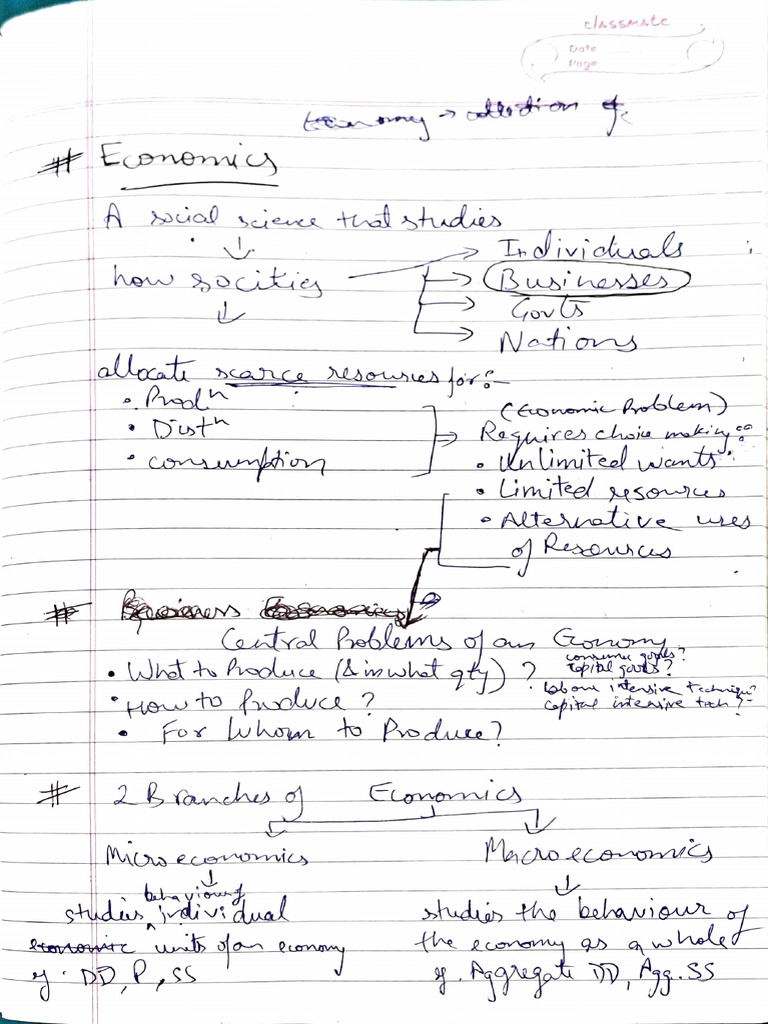 classmate
Date
Page
Economy → collection of
# Economics
A social science that studies
↓
how socities → Individuals
→ Businesses
→ Govts
→ Nations
↓
allocate scarce resources for:-
• Prodⁿ
• Distⁿ
• consumption
(Economic Problem)
Requires choice making ∵
• Unlimited wants
• Limited resources
• Alternative uses
of Resources
# Business Economics
Central Problems of an Economy
• What to Produce (& in what qty) ? consumer goods? capital goods?
• How to Produce ? labour intensive technique? capital intensive tech?
• For Whom to Produce?
# 2 Branches of Economics
Microeconomics
↓
studies behaviour of individual
economic units of an economy
eg. DD, P, SS
Macroeconomics
↓
studies the behaviour of
the economy as a whole
eg. Aggregate DD, Agg. SS